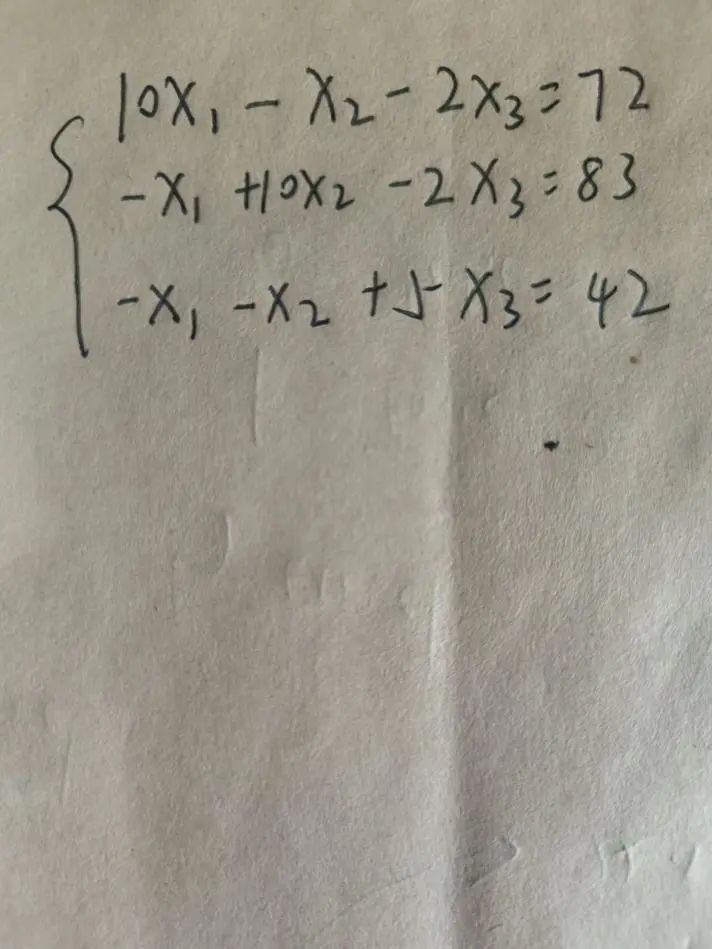 10x₁ - x₂ - 2x₃ = 72
-x₁ + 10x₂ - 2x₃ = 83
-x₁ - x₂ + 5x₃ = 42